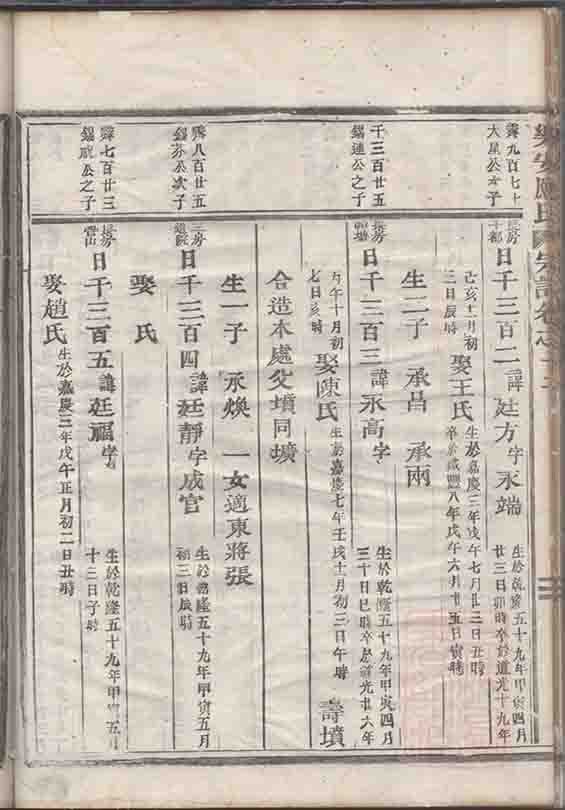 樂安
宗譜卷之十五
霽九百七十
大星公次子
長房
日千三百二 諱廷方字永端 生於乾隆五十九年甲寅四月
廿三日卯時卒於道光十九年
己亥十一月初
三日辰時 娶王氏 生於嘉慶三年戊午七月廿三日丑時
卒於咸豐八年戊午六月廿五日寅時
生二子 承昌 承兩
千三百廿五
錫連公之子
長房
日千三百三 諱永高字 生於乾隆五十九年甲寅四月
三十日巳時卒於道光廿六年
丙午十月初
七日亥時 娶陳氏 生於嘉慶七年壬戌十一月初二日午時 壽墳
合造本處父墳同壙
生一子 承煥 一女適東蔣張
霽八百廿五
錫芬公次子
三房
日千三百四 諱廷靜字成官 生於乾隆五十九年甲寅五月
初三日辰時
娶 氏
霽七百廿三
公之子
長房
日千三百五 諱廷福字 生於乾隆五十九年甲寅五月
十三日子時
娶趙氏 生於嘉慶三年戊午正月初二日丑時